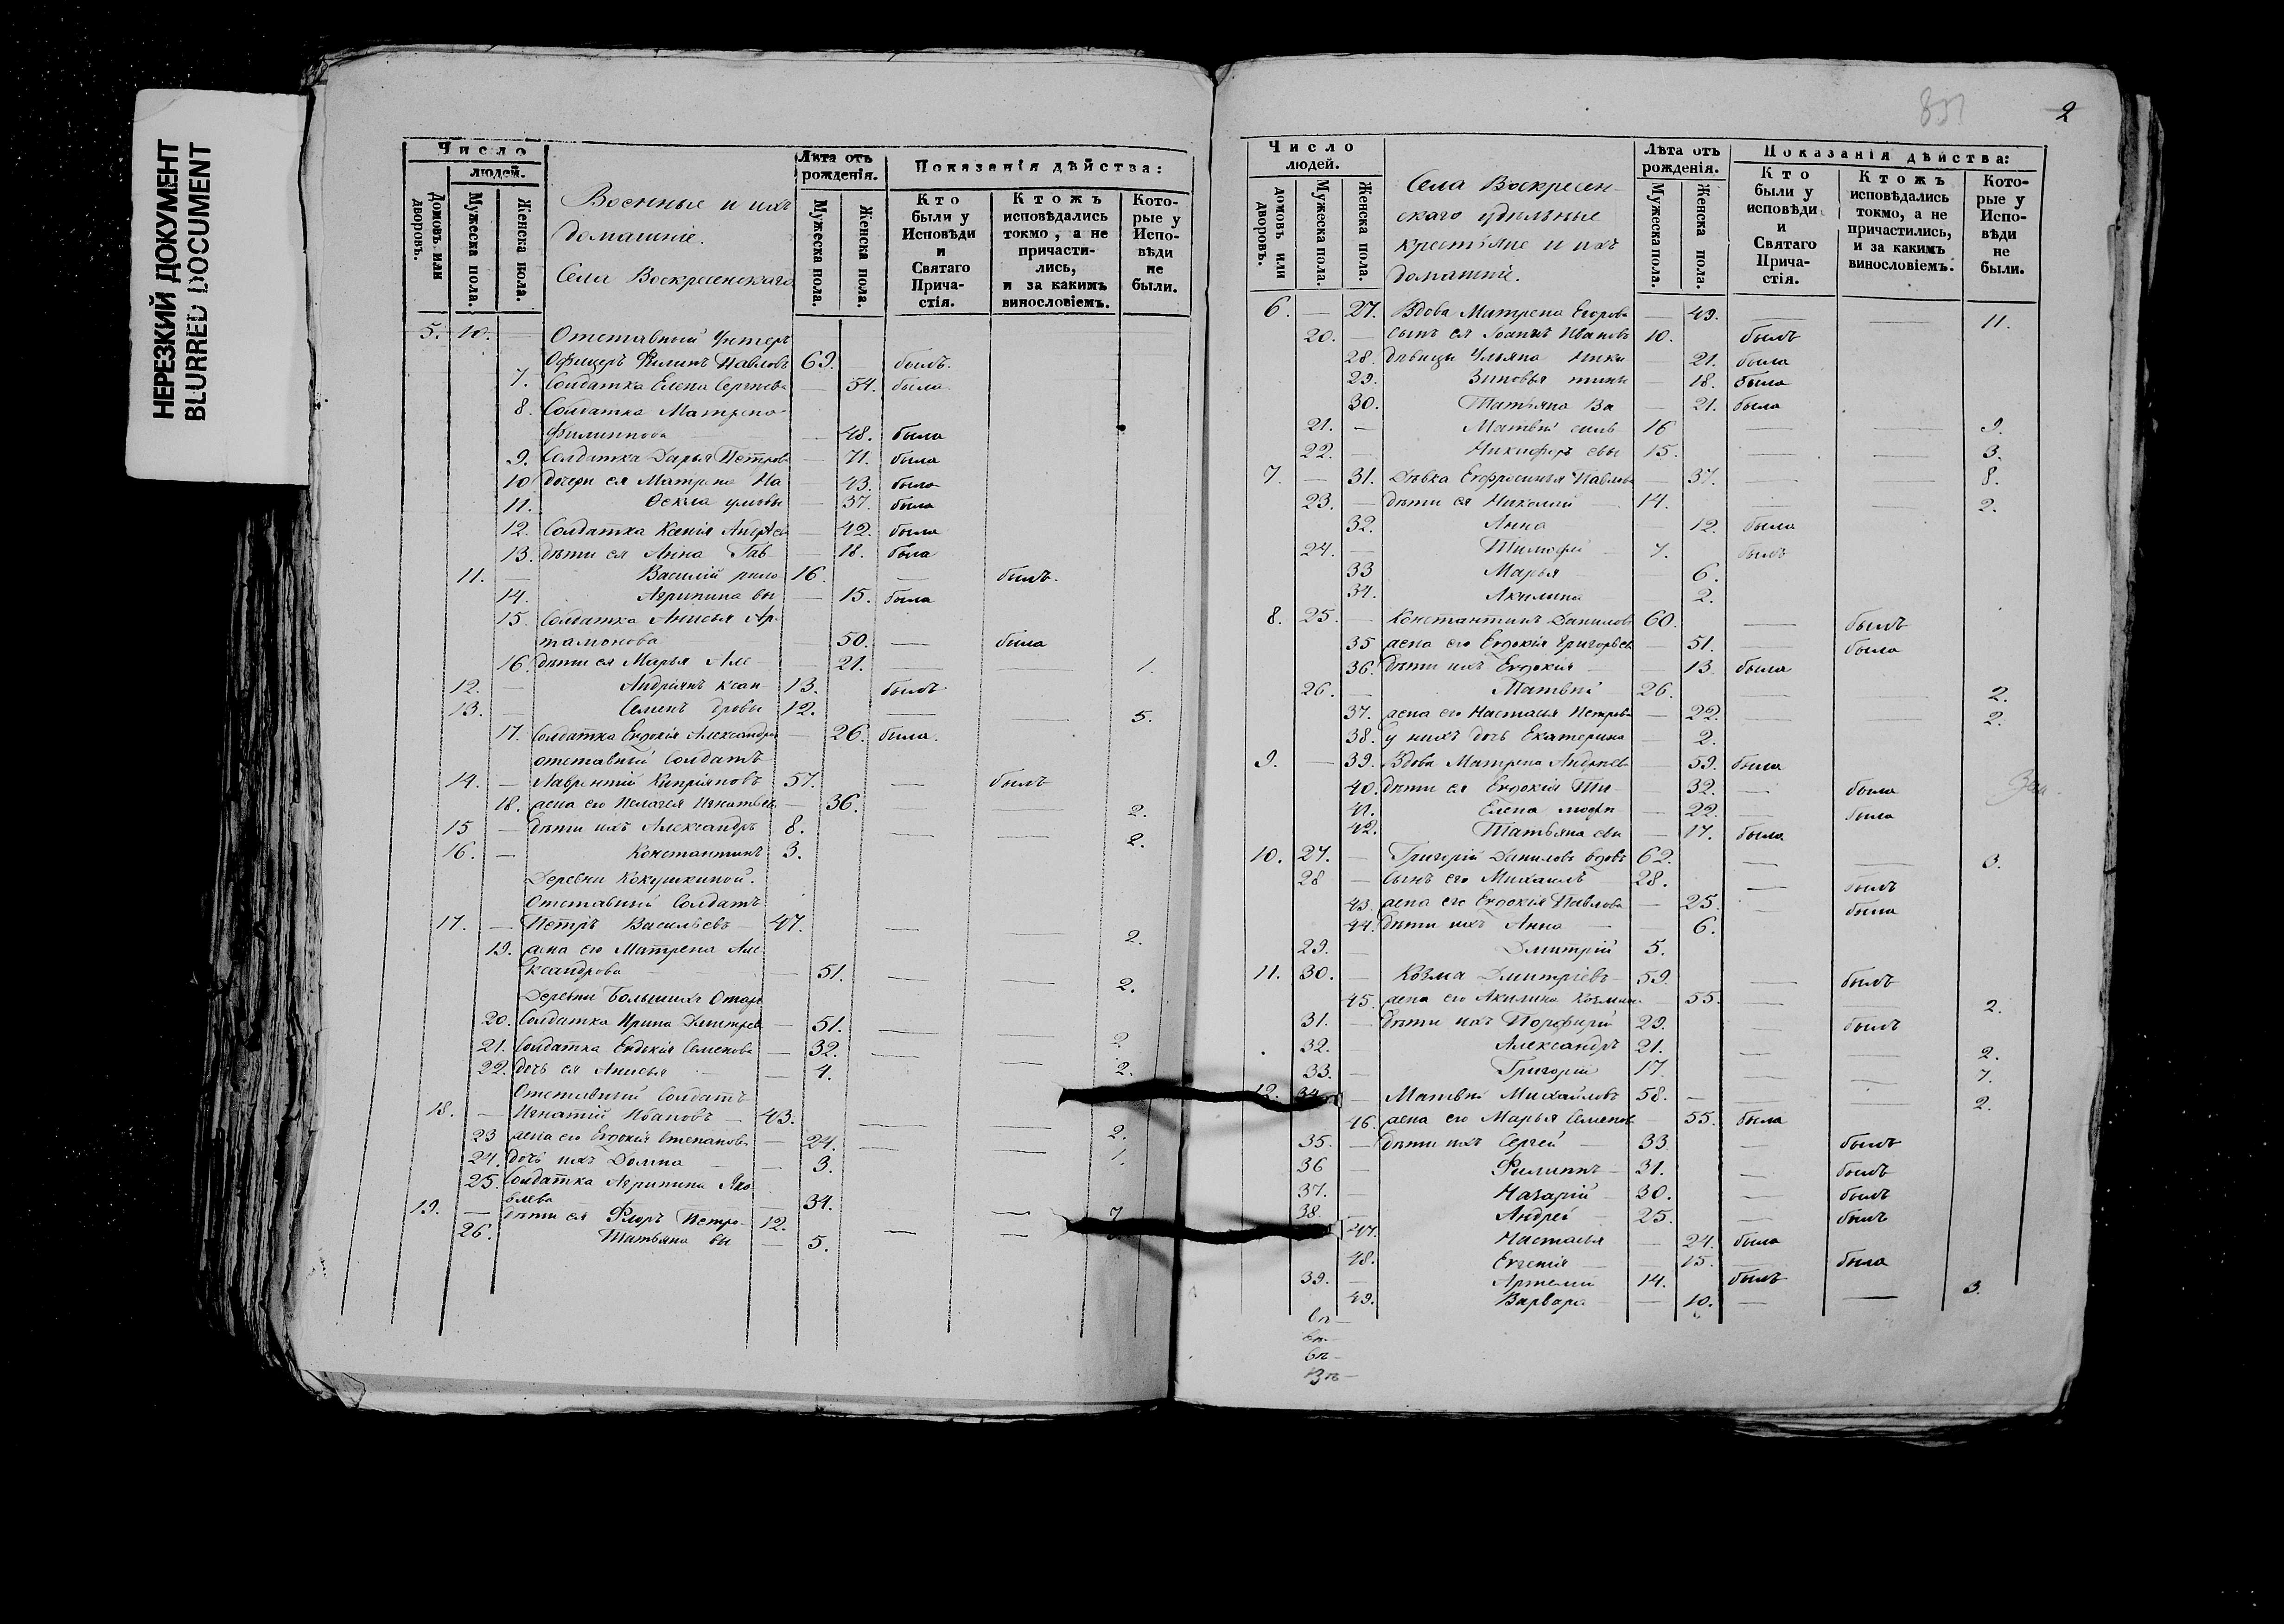 НЕРЕЗКИЙ ДОКУМЕНТ
BLURRED DOCUMENT
Число
людей.
Домовъ или дворовъ.
Мужеска пола.
Женска пола.
Военные и ихъ
домашніе.
Села Воскресенскаго
Лѣта отъ рожденія.
Мужеска пола.
Женска пола.
Показанія дѣйства:
Кто были у Исповѣди и Святаго Прича- стія.
Ктожъ исповѣдались токмо, а не причасти- лись, и за какимъ винословіемъ.
Кото- рые у Испо- вѣди не были.
5. 10. — Отставный Унтеръ
Офицеръ Филипъ Павловъ 69. былъ.
7. Солдатка Елена Сергѣева — 54. была
8. Солдатка Матрена
Филиппова — 48. была
9. Солдатка Дарья Петрова — 71. была
10 дочери ея Матрена На 43. была
11. Фекла умовы — 37. была
12. Солдатка Ксенія Андреев — 42. была
13. дѣти ея Анна Гав — 18. была
11. — Василій рило 16. — былъ.
14. Агрипина вы — 15. была
15. Солдатка Анисья Ар-
тамонова — 50. — была
16. дѣти ея Марья Але — 21. — — 1.
12. — Андріянъ ксан 13. былъ
13. — Семенъ дровы 12. — — 5.
17. Солдатка Евдокія Александро — 26. была.
отставный Солдатъ
14. — Лаврентій Кипріяновъ 57. — былъ
18. жена его Пелагея Игнатьев — 36. — — 2.
15 — дѣти ихъ Александръ 8. — — 2.
16. — Константинъ 3.
Деревни Кокушкиной.
Отставный Солдатъ
17. — Петръ Васильевъ — 47. — — 2.
19. жена его Матрена Але
ксандрова — 51. — — 2.
Деревни Большихъ Отаръ
20. Солдатка Ирина Дмитрев — 51. — — 2
21. Солдатка Евдокія Семенова — 32. — — 2.
22. дочь ея Анисья — 4.
Отставный Солдатъ
18. — Игнатій Ивановъ — 43. — — 2.
23 жена его Евдокія Степанов — 24. — — 1.
24. дочь ихъ Домна — 3.
25. Солдатка Агрипина Яко
влева — 34. — — 7
19. — дѣти ея Флоръ Петро- 12. — —
26. Татьяна вы — 5.
2
Число
людей.
домовъ или дворовъ.
Мужеска пола.
Женска пола.
Села Воскресен-
скаго удѣльные
крестьяне и ихъ
домашніе.
Лѣта отъ рожденія.
Мужеска пола.
Женска пола.
Показанія дѣйства:
Кто были у исповѣди и Святаго Прича- стія.
Ктожъ исповѣдались токмо, а не причастились, и за какимъ винословіемъ.
Кото- рые у Испо- вѣди не были.
6. — 27. Вдова Матрена Егорова — 49. — — 11.
20. — сынъ ея Іоаннъ Ивановъ 10. былъ
28. дѣвицы Ульяна Ники — 21. была
29. Зиновья тины — 18. была
30. Татьяна Ва — 21. была
21. — Матвѣй силь 16 — — 9.
22. — Никифоръ евы 15. — — 3.
7. — 31. Дѣвка Евфросинья Павлов — 37. — — 8.
23. — дѣти ея Николай — 14. — — 2.
32. Анна — 12. была
24. — Тимофей 7. былъ
33 Марья — 6.
34. Акилина — 2.
8. 25. — Константинъ Даниловъ 60. — былъ
35 жена его Евдокія Григорьев — 51. — была
36. дѣти ихъ Евдокія — 13 была
26. — Матвѣй 26. — — 2.
37. жена его Настасья Петрова — 22. — — 2.
38. у нихъ дочь Екатерина — 2.
9. — 39. Вдова Матрена Андреев — 59. была
40. дѣти ея Евдокія Ти- — 32. — была
41. Елена мофѣ — 22. — была
42. Татьяна евы — 17. была
10. 27. — Григорій Даниловъ вдовъ 62. — — 3.
28 — сынъ его Михаилъ 28. — былъ
43. жена его Евдокія Павлова — 25. — была
44. дѣти ихъ Анна — 6.
29. — Дмитрій 5.
11. 30. — Козма Дмитріевъ — 59. — былъ
45. жена его Акилина Козмин — 55. — — 2.
31. — дѣти ихъ Порфирій 29. — былъ
32. — Александръ 21. — — 2.
33. — Григорій 17. — — 7.
12. 34. — Матвѣй Михайловъ 58. — — 2.
46. жена его Марья Семенов — 55. была
35. — дѣти ихъ Сергей — 33. — былъ
36 — Филиппъ — 31. — былъ
37. — Назарій — 30. — былъ
38. — Андрей — 25. — былъ
47. Настасья — 24. была
48. Евгенія — 15. — была
39. — Артемій 14. былъ
49. Варвара — 10. — — 3.